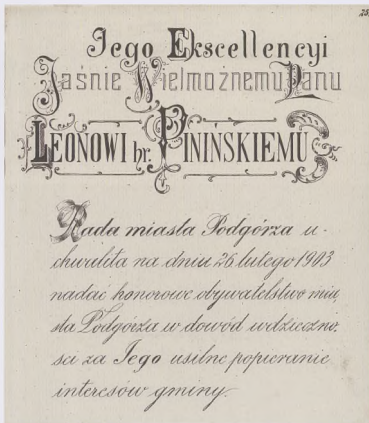 25
Jego Ekscellencyi
Jaśnie Wielmożnemu Panu
Leonowi hr. Pinińskiemu
Rada miasta Podgórza u-
chwaliła na dniu 26 lutego 1903
nadać honorowe obywatelstwo mia
sta Podgórza w dowód wdzięczno-
ści za Jego usilne popieranie
interesów gminy.